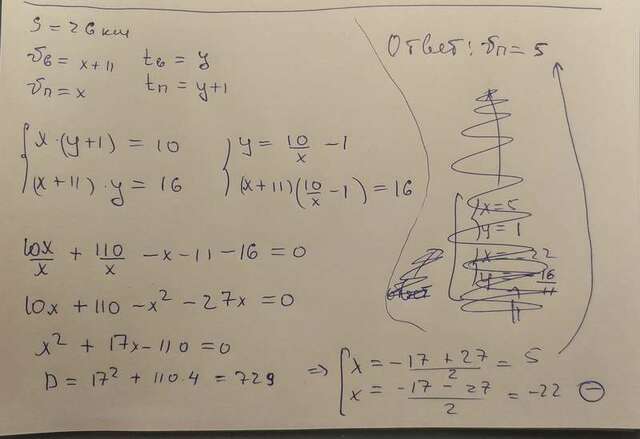 S = 26 км
υв = x+11 tв = y
υп = x tп = y+1
{ x·(y+1) = 10
(x+11)·y = 16
} y = 10/x - 1
(x+11)(10/x - 1) = 16
10x/x + 110/x - x - 11 - 16 = 0
10x + 110 - x² - 27x = 0
x² + 17x - 110 = 0
D = 17² + 110·4 = 729
=> { x = (-17 + 27)/2 = 5
x = (-17 - 27)/2 = -22 ⊖
Ответ: υп = 5
x = 5
y = 1
x = -22